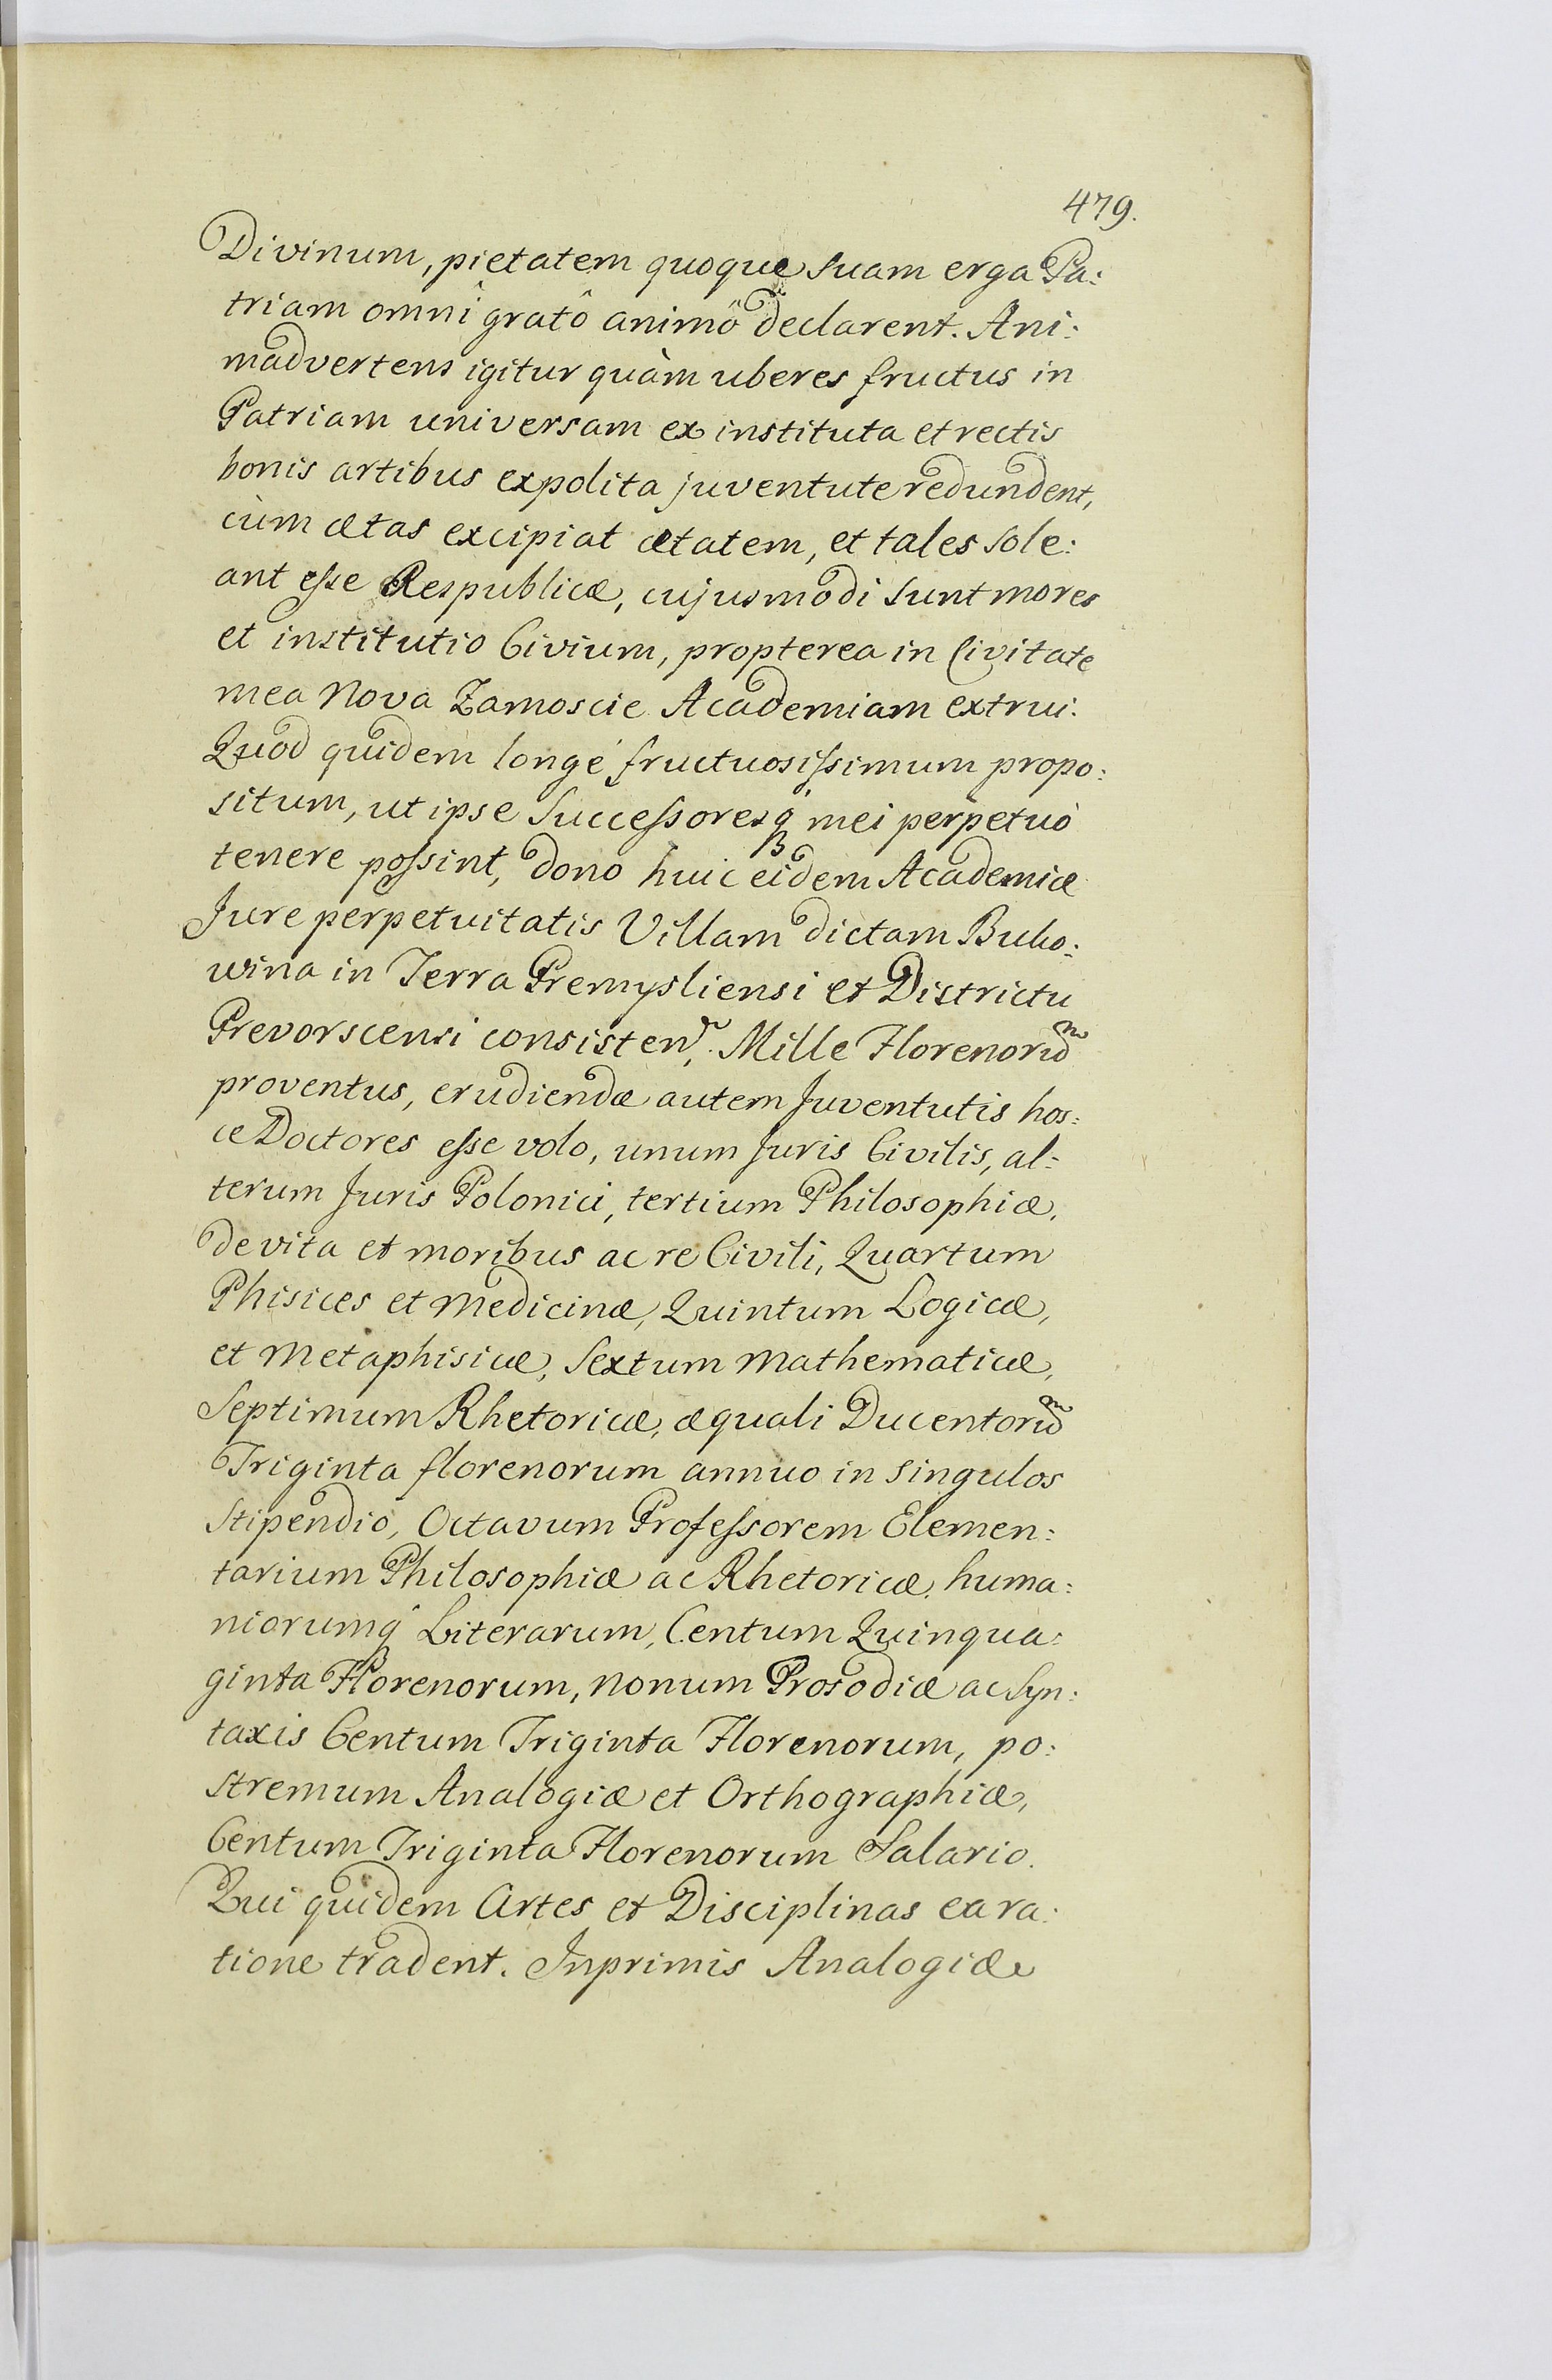 479.
Divinum, pietatem quoque suam erga Pa:
triam omnî gratô animô declarent. Ani:
madvertens igitur quàm uberes fructus in
Patriam universam ex instituta et rectis
bonis artibus expolita juventute redundent,
cùm ætas excipiat ætatem, et tales sole:
ant esse Respublicæ, cujusmodi sunt mores
et institutio Civium, propterea in Civitate
mea Nova Zamoscie Academiam extrui.
Quod quidem longé fructuosissimum propo:
situm, ut ipse Successoresq́ mei perpetuò
tenere possint, dono huic eidem Academiæ
Jure perpetuitatis Villam dictam Buko:
wina in Terra Premysliensi et Districtu
Prevorscensi consisten. Mille Florenorum
proventus, erudiendæ autem Juventutis hos:
ce Doctores esse volo, unum Juris Civilis, al:
terum Juris Polonici, tertium Philosophiæ,
de vita et moribus ac re Civili, Quartum
Phisices et Medicinæ, Quintum Logicæ,
et Metaphisicæ, Sextum Mathematicæ,
Septimum Rhetoricæ, æquali Ducentorum
Triginta florenorum annuo in singulos
stipendio, Octavum Professorem Elemen:
tarium Philosophiæ ac Rhetoricæ, huma:
niorumq́ Literarum, Centum Quinqua:
ginta Florenorum, nonum Prosodiæ ac Syn:
taxis Centum Triginta Florenorum, po:
stremum Analogiæ et Orthographiæ,
Centum Triginta Florenorum Salario.
Qui quidem Artes et Disciplinas ea ra:
tione tradent. Inprimis Analogiæ